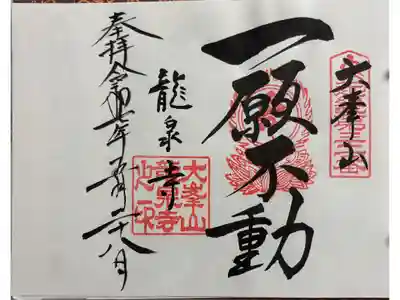 大峯山
一願不動
龍泉寺
大峯山
龍泉寺
之印
奉拝令和七年五月二十八日